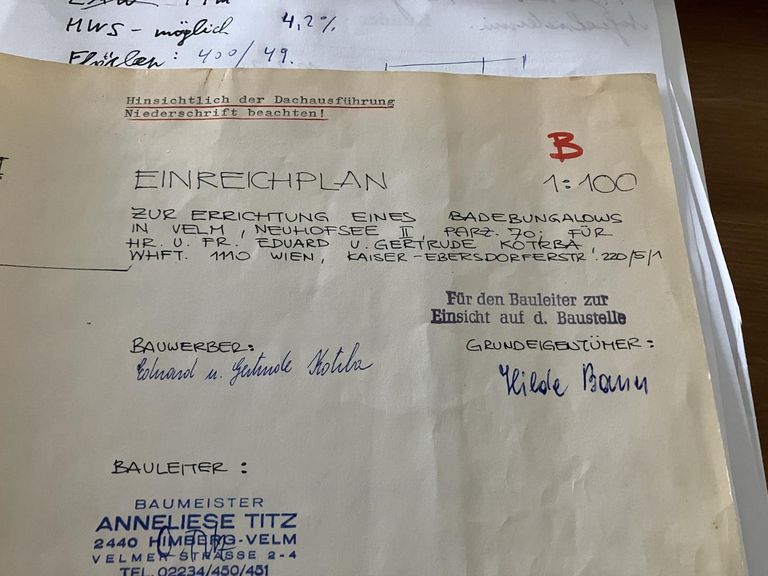 MWS - möglich 4,2%
Flächen: 400/49.
Hinsichtlich der Dachausführung
Niederschrift beachten!
B
EINREICHPLAN 1:100
ZUR ERRICHTUNG EINES BADEBUNGALOWS
IN VELM, NEUHOFSEE II, PARZ. 70; FÜR
HR. U. FR. EDUARD U. GERTRUDE KOTRBA
WHFT. 1110 WIEN, KAISER-EBERSDORFERSTR. 220/5/1
Für den Bauleiter zur
Einsicht auf d. Baustelle
BAUWERBER: GRUNDEIGENTÜMER:
Eduard u. Gertrude Kotrba Hilde
BAULEITER:
BAUMEISTER
ANNELIESE TITZ
2440 HIMBERG-VELM
VELMER STRASSE 2-4
TEL. 02234/450/451